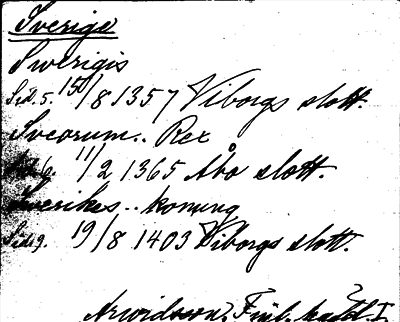 Sverige
Swerigis
Sid. 5. 15/8 1357 Viborgs slott.
Sveorum.. Rex
Sid. 6. 11/2 1365 Åbo slott.
Swerikes.. konung
Sid 9. 19/8 1403 Viborgs slott.
Arwidsson, Finl.